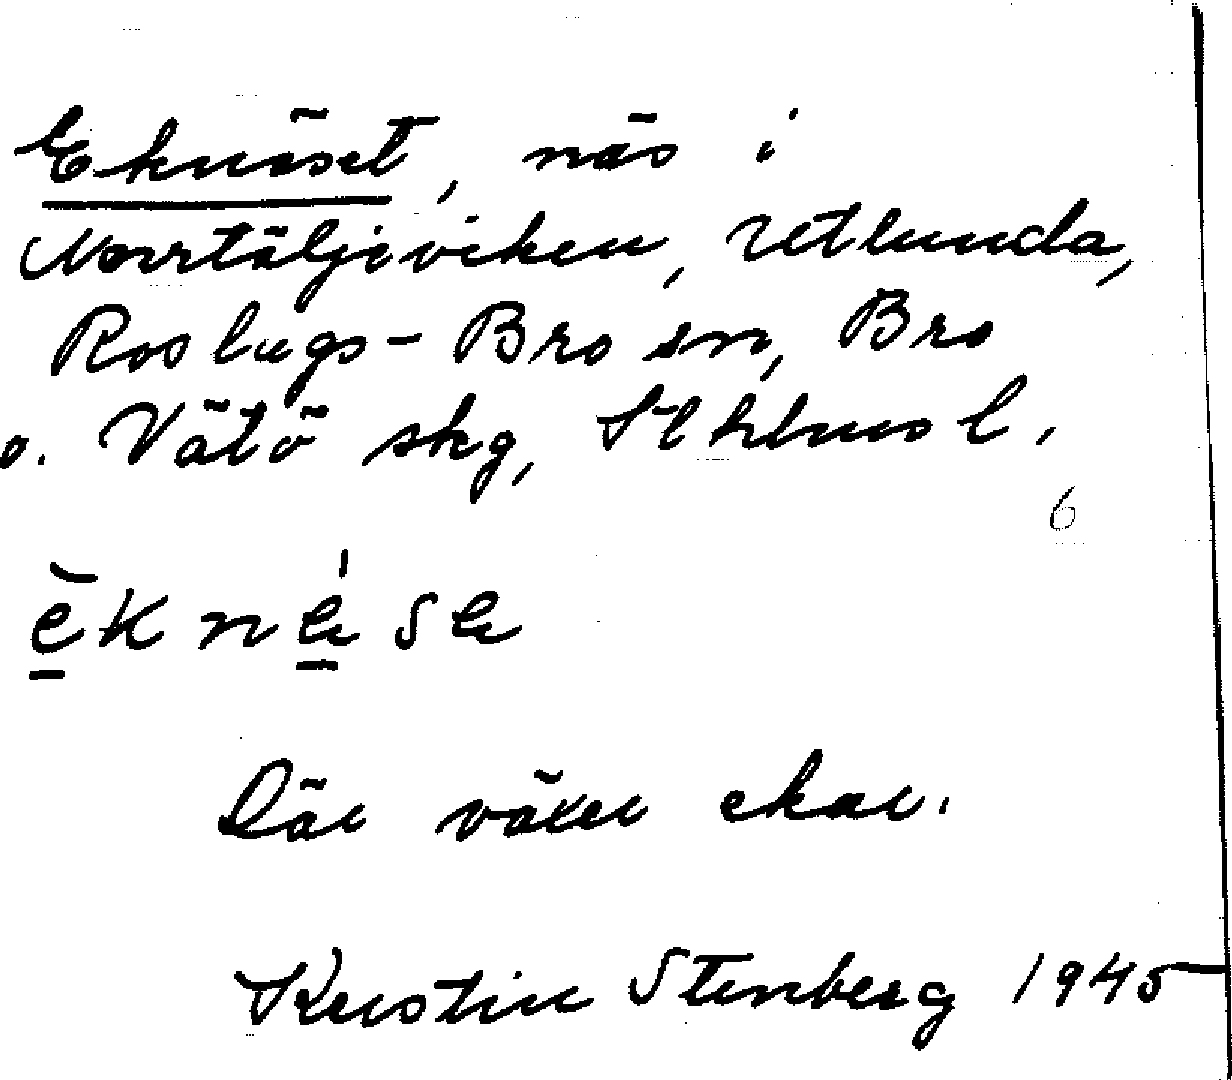 Eknäset, näs i
Norrtäljeviken, Utlunda,
Roslags-Bro sn, Bro
o. Vätö skg, Sthlms l.
6
Där växer ekar.
Kerstin Stenberg 1945